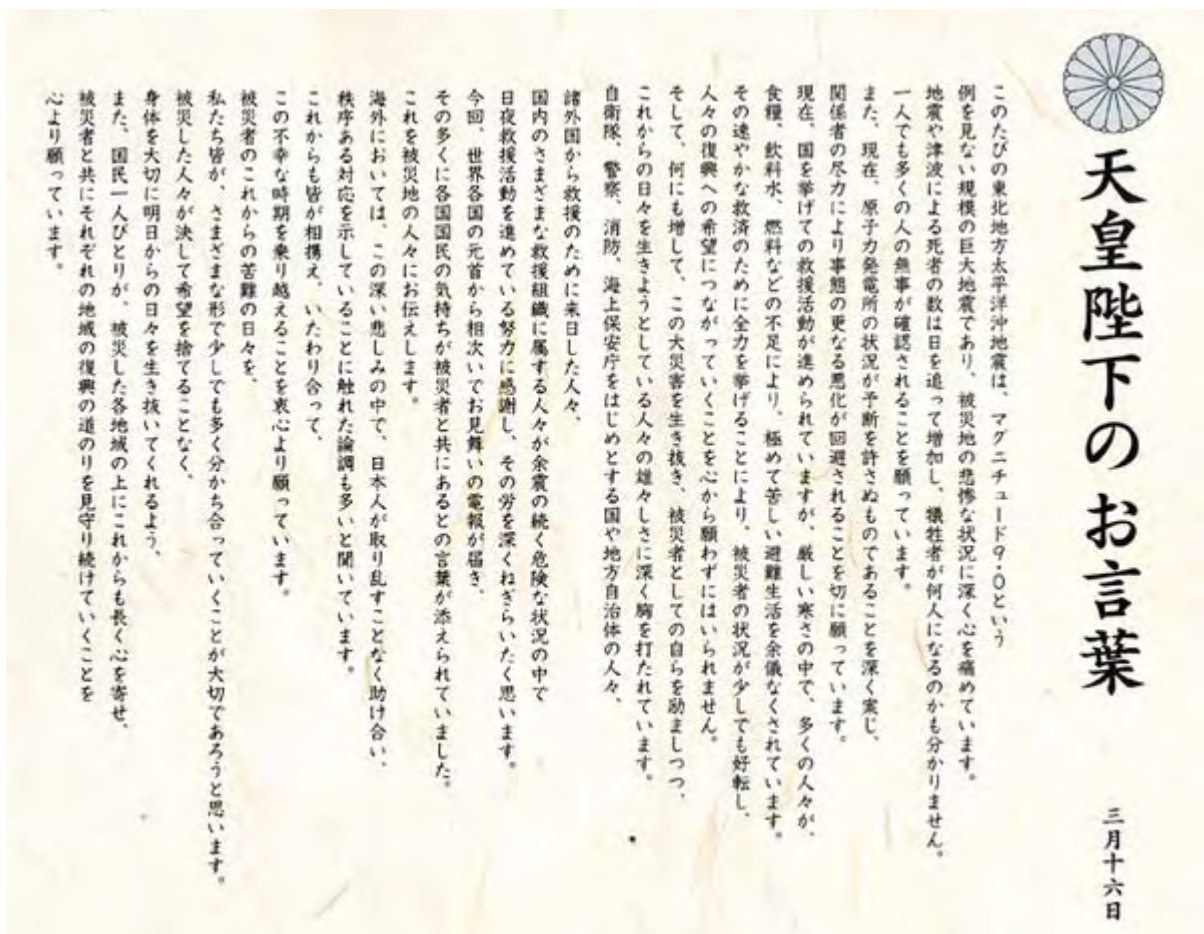 天皇陛下のお言葉
三月十六日
このたびの東北地方太平洋沖地震は、マグニチュード9・0という
例を見ない規模の巨大地震であり、被災地の悲惨な状況に深く心を痛めています。
地震や津波による死者の数は日を追って増加し、犠牲者が何人になるのかも分かりません。
一人でも多くの人の無事が確認されることを願っています。
また、現在、原子力発電所の状況が予断を許さぬものであることを深く案じ、
関係者の尽力により事態の更なる悪化が回避されることを切に願っています。
現在、国を挙げての救援活動が進められていますが、厳しい寒さの中で、多くの人々が、
食糧、飲料水、燃料などの不足により、極めて苦しい避難生活を余儀なくされています。
その速やかな救済のために全力を挙げることにより、被災者の状況が少しでも好転し、
人々の復興への希望につながっていくことを心から願わずにはいられません。
そして、何にも増して、この大災害を生き抜き、被災者としての自らを励ましつつ、
これからの日々を生きようとしている人々の雄々しさに深く胸を打たれています。
自衛隊、警察、消防、海上保安庁をはじめとする国や地方自治体の人々、
諸外国から救援のために来日した人々、
国内のさまざまな救援組織に属する人々が余震の続く危険な状況の中で
日夜救援活動を進めている努力に感謝し、その労を深くねぎらいたく思います。
今回、世界各国の元首から相次いでお見舞いの電報が届き、
その多くに各国国民の気持ちが被災者と共にあるとの言葉が添えられていました。
これを被災地の人々にお伝えします。
海外においては、この深い悲しみの中で、日本人が取り乱すことなく助け合い、
秩序ある対応を示していることに触れた論調も多いと聞いています。
これからも皆が相携え、いたわり合って、
この不幸な時期を乗り越えることを衷心より願っています。
被災者のこれからの苦難の日々を、
私たち皆が、さまざまな形で少しでも多く分かち合っていくことが大切であろうと思います。
被災した人々が決して希望を捨てることなく、
身体を大切に明日からの日々を生き抜いてくれるよう、
また、国民一人びとりが、被災した各地域の上にこれからも長く心を寄せ、
被災者と共にそれぞれの地域の復興の道のりを見守り続けていくことを
心より願っています。